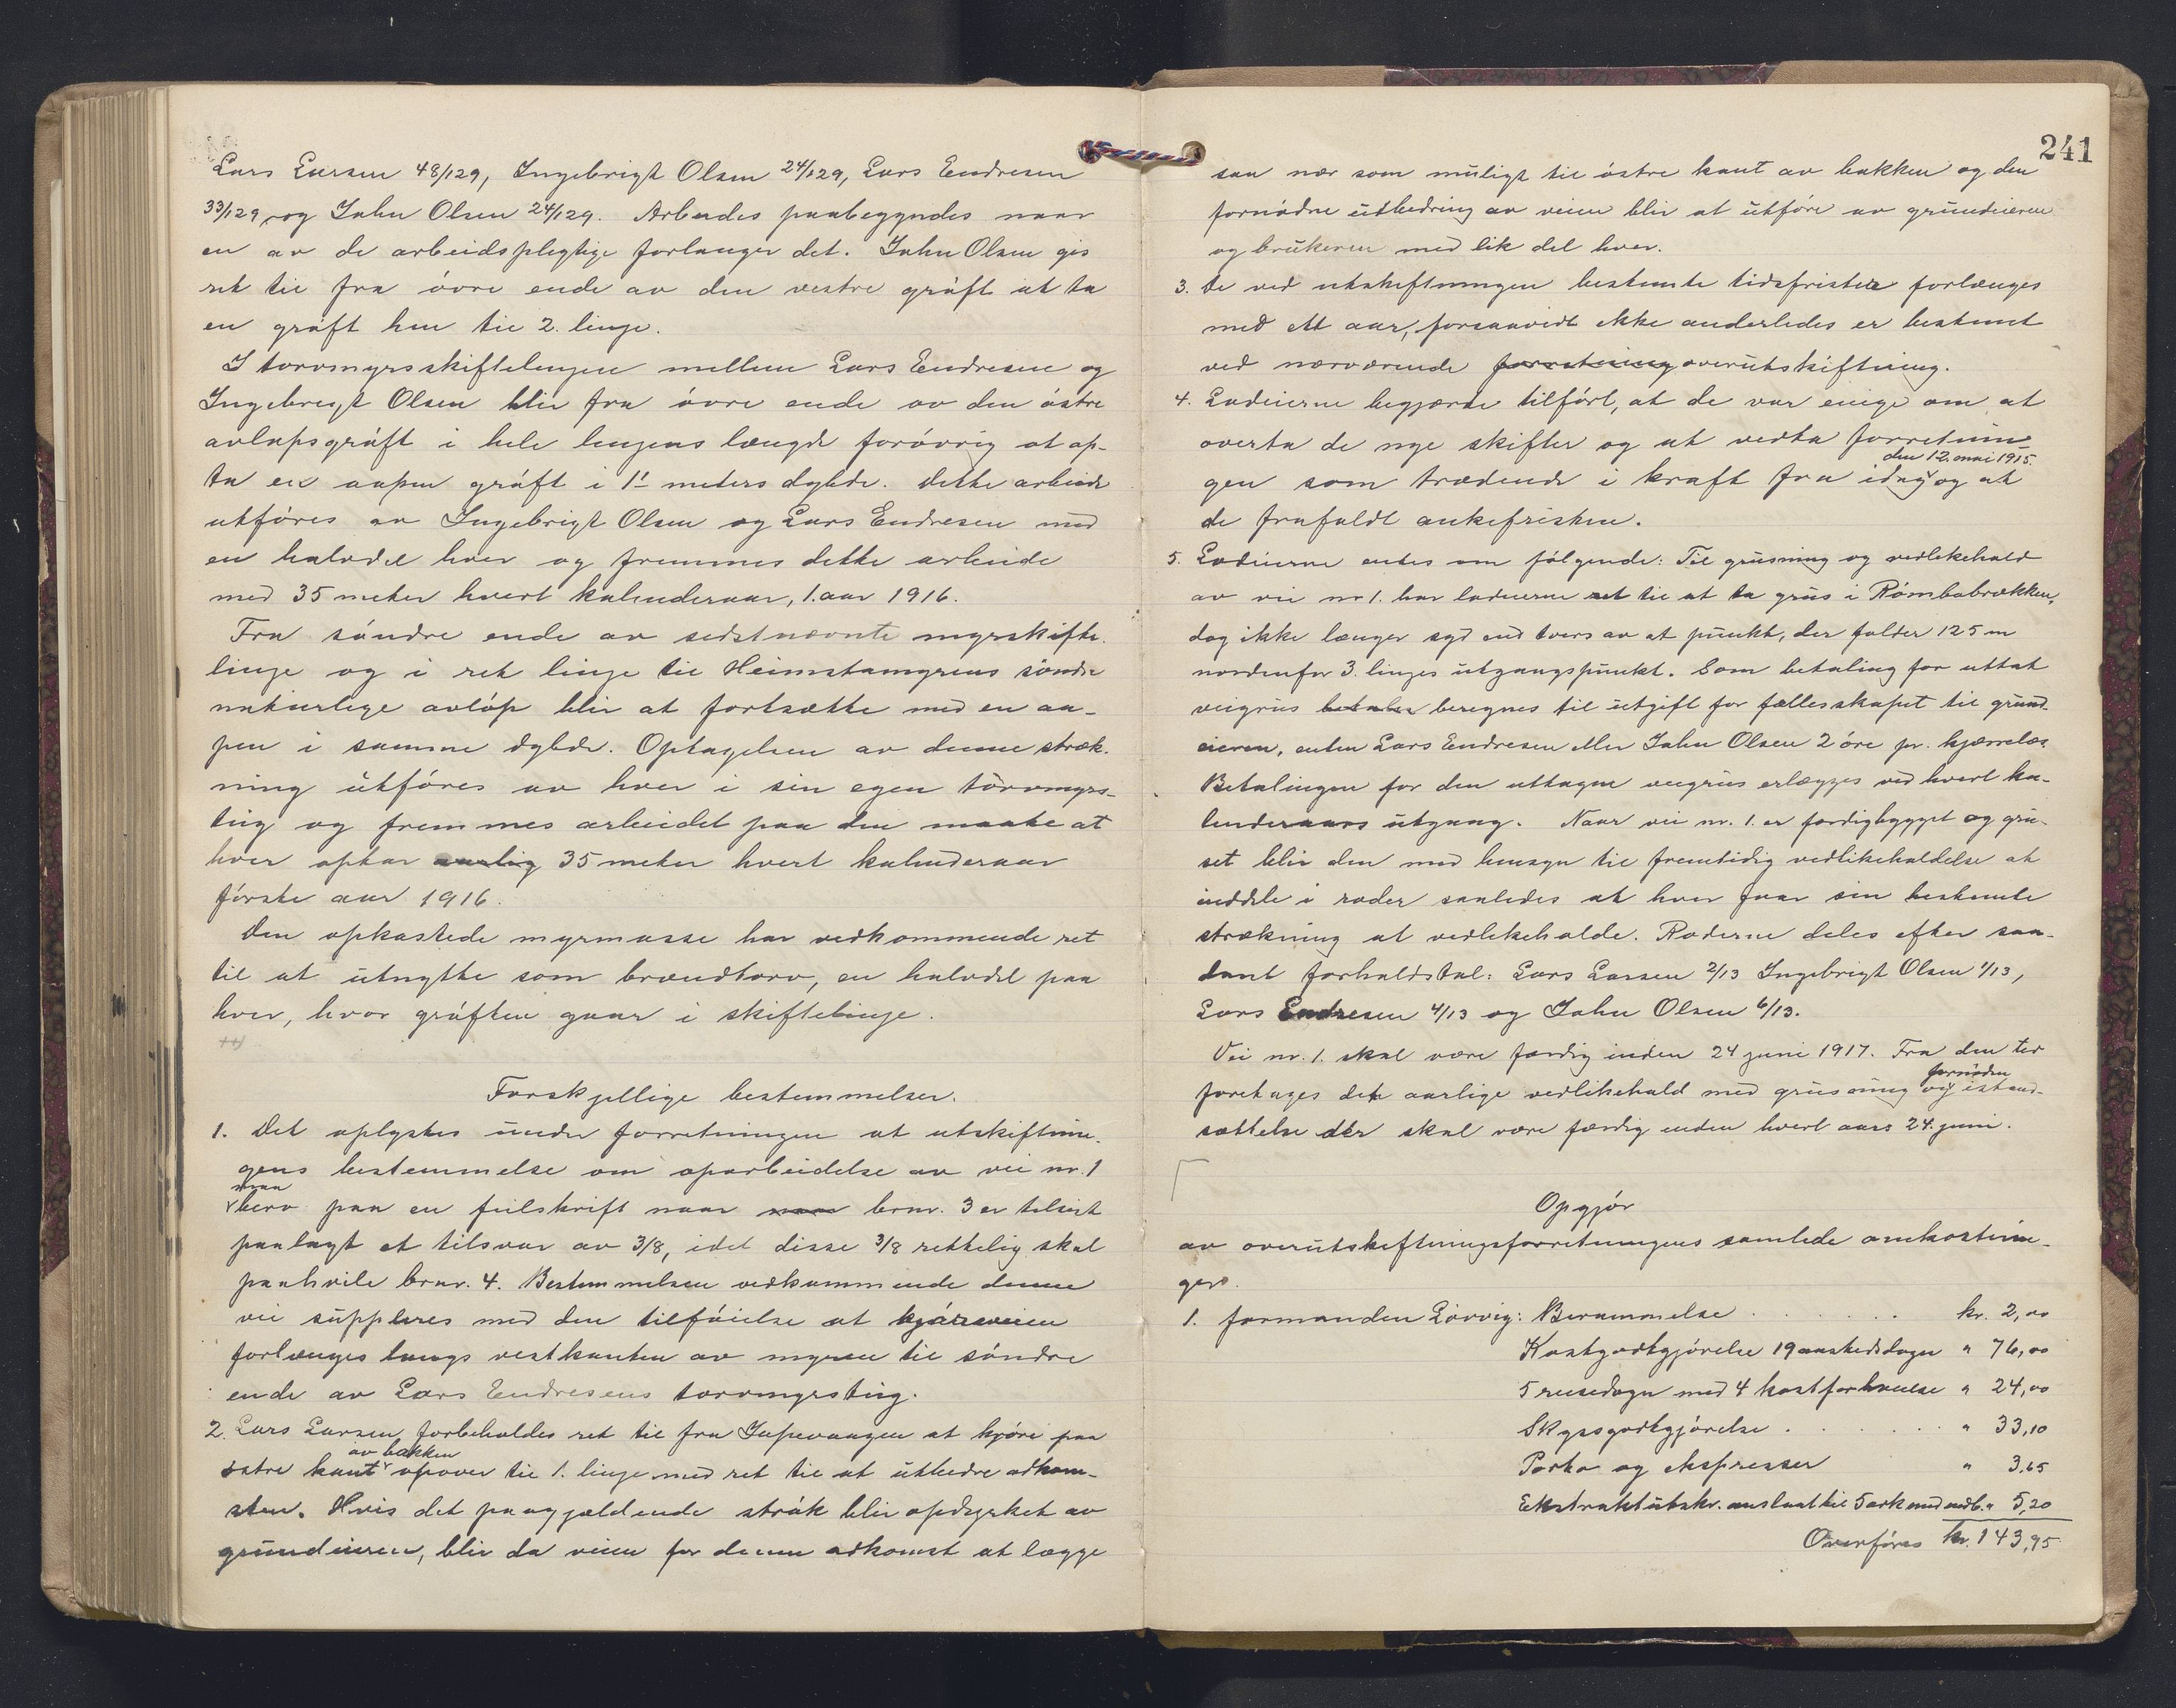 Lars Larsen 48/129, Ingebrigt Olsen 24/129, Lars Endresen
33/129, og Jahn Olsen 24/129. Arbeides paabegyndes naar
en av de arbeidspligtige forlanger det. Jahn Olsen gis
ret til fra övre ende av den vestre gröft at ta
en gröft hen til 2. linje.
I torvmyrsskiftelinjen mellem Lars Endresen og
Ingebrigt Olsen blir fra övre ende av den östre
avlöpsgröft i hele linjens længde forövrig at op-
ta en aapen gröft i 1 meters dybde. Dette arbeide
utföres av Ingebrigt Olsen og Lars Endresen med
en halvdel hver og fremmes dette arbeide
med 35 meter hvert kalenderaar, 1. aar 1916.
Fra söndre ende av sidstnævnte myrskifte-
linje og i ret linje til Heimstamyrens söndre
naturlige avlöp blir at fortsætte med en aa-
pen i samme dybde. Optagelsen av denne stræk-
ning utföres av hver i sin egen torvmyrs-
teig og fremmes arbeidet paa den maate at
hver optar aarlig 35 meter hvert kalenderaar
förste aar 1916.
Den opkastede myrmasse har vedkommende ret
til at utnytte som brændtorv, en halvdel paa
hver, hvor gröften gaar i skiftelinje.
Forskjellige bestemmelser.
1. Det oplystes under forretningen at utskiftnin-
gens bestemmelse om oparbeidelse av vei nr. 1
maa
bero paa en feilskrift naar brnr. 3 er tilsist
paalagt et tilsvar av 3/8, idet disse 3/8 rettelig skal
paahvile brnr. 4. Bestemmelsen vedkommende denne
vei suppleres med den tilföielse at kjöreveien
forlænges langs vestkanten av myren til söndre
ende av Lars Endresens torvmyrsteig.
2. Lars Larsen forbeholdes ret til fra Jupevaagen at kjöre paa
av bakken
östre kant opover til 1. linje med ret til at utbedre adkom-
sten. Hvis det paagjældende strök blir opdyrket av
grundeieren, blir da veien for denne adkomst at lægge
241
saa nær som muligt til östre kant av bakken og den
fornödne utbedring av veien blir at utföre av grundeieren
og brukeren med lik del hver.
3. De ved utskiftningen bestemte tidsfrister forlænges
med ett aar, forsaavidt ikke anderledes er bestemt
ved nærværende forretning overutskiftning.
4. Lodeierne begjærte tilfört, at de var enige om at
overta de nye skifter og at vedta forretnin-
den 12. mai 1915.
gen som trædende i kraft fra idag og at
de frafaldt ankefristen.
5. Lodeierne entes om fölgende: Til grusning og vedlikehold
av vei nr 1. har lodeierne ret til at ta grus i Römbabrækken,
dog ikke længer syd end tvers av et punkt, der falder 125 m
nordenfor 3. linjes utgangspunkt. Som betaling for uttat
veigrus betales beregnes til utgift for fællesskapet til grund-
eieren, enten Lars Endresen eller Jahn Olsen 2 öre pr. kjærrelas.
Betalingen for den uttagne veigrus erlægges ved hvert ka-
lenderaars utgang. Naar vei nr. 1. er færdigbygget og gru-
set blir den med hensyn til fremtidig vedlikeholdelse at
inddele i roder saaledes at hver faar sin bestemte
strækning at vedlikeholde. Roderne deles efter saa-
dant forholdstal: Lars Larsen 2/13 Ingebrigt Olsen 1/13,
Lars Endresen 4/13 og Jahn Olsen 6/13.
Vei nr. 1. skal være færdig inden 24 juni 1917. Fra den tid
fornöden
foretages det aarlige vedlikehold med grusning og istand-
sættelse der skal være færdig inden hvert aars 24. juni.
Opgjör
av overutskiftningsforretningens samlede omkostnin-
ger.
1. formanden Lövvig: Berammelse . . . . . . kr. 2,00
Kostgodtgjörelse 19 aastedsdager " 76,00
5 reisedager med 4 kostforhöielse " 24,00
Skyssgodtgjörelse . . . . . " 33,10
Porto og ekspresser " 3,65
Ekstraktutskr. anslaat til 5 ark med medb. " 5,20
Overföres kr. 143,95